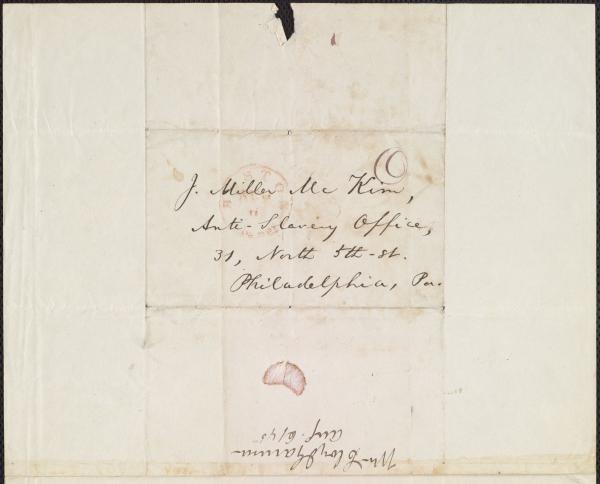 J. Miller Mc Kim,
Anti-Slavery Office,
31, North 5th-st.
Philadelphia, Pa.
Wm Lloyd Garrison